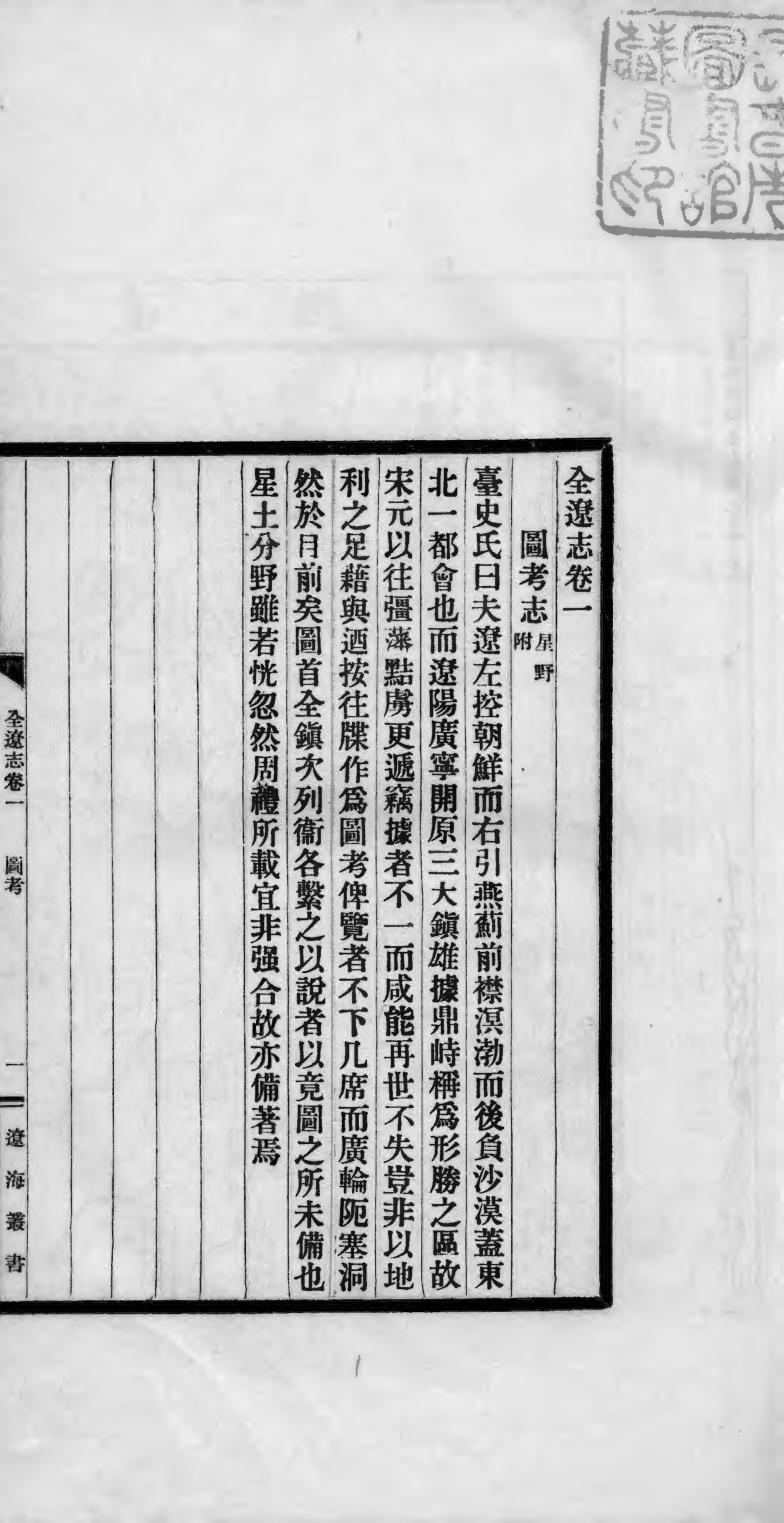 全遼志卷一
圖考志 星野附
臺史氏曰夫遼左控朝鮮而右引燕薊前襟溟渤而後負沙漠蓋東
北一都會也而遼陽廣寧開原三大鎭雄據鼎峙稱爲形勝之區故
宋元以往彊藩黠虜更遞竊據者不一而咸能再世不失豈非以地
利之足藉與迺按往牒作爲圖考俾覽者不下几席而廣輪阨塞洞
然於目前矣圖首全鎭次列衞各繫之以說者以竟圖之所未備也
星土分野雖若恍忽然周禮所載宜非强合故亦備著焉
全遼志卷一 圖考 一 遼海叢書
圖書館
藏書印